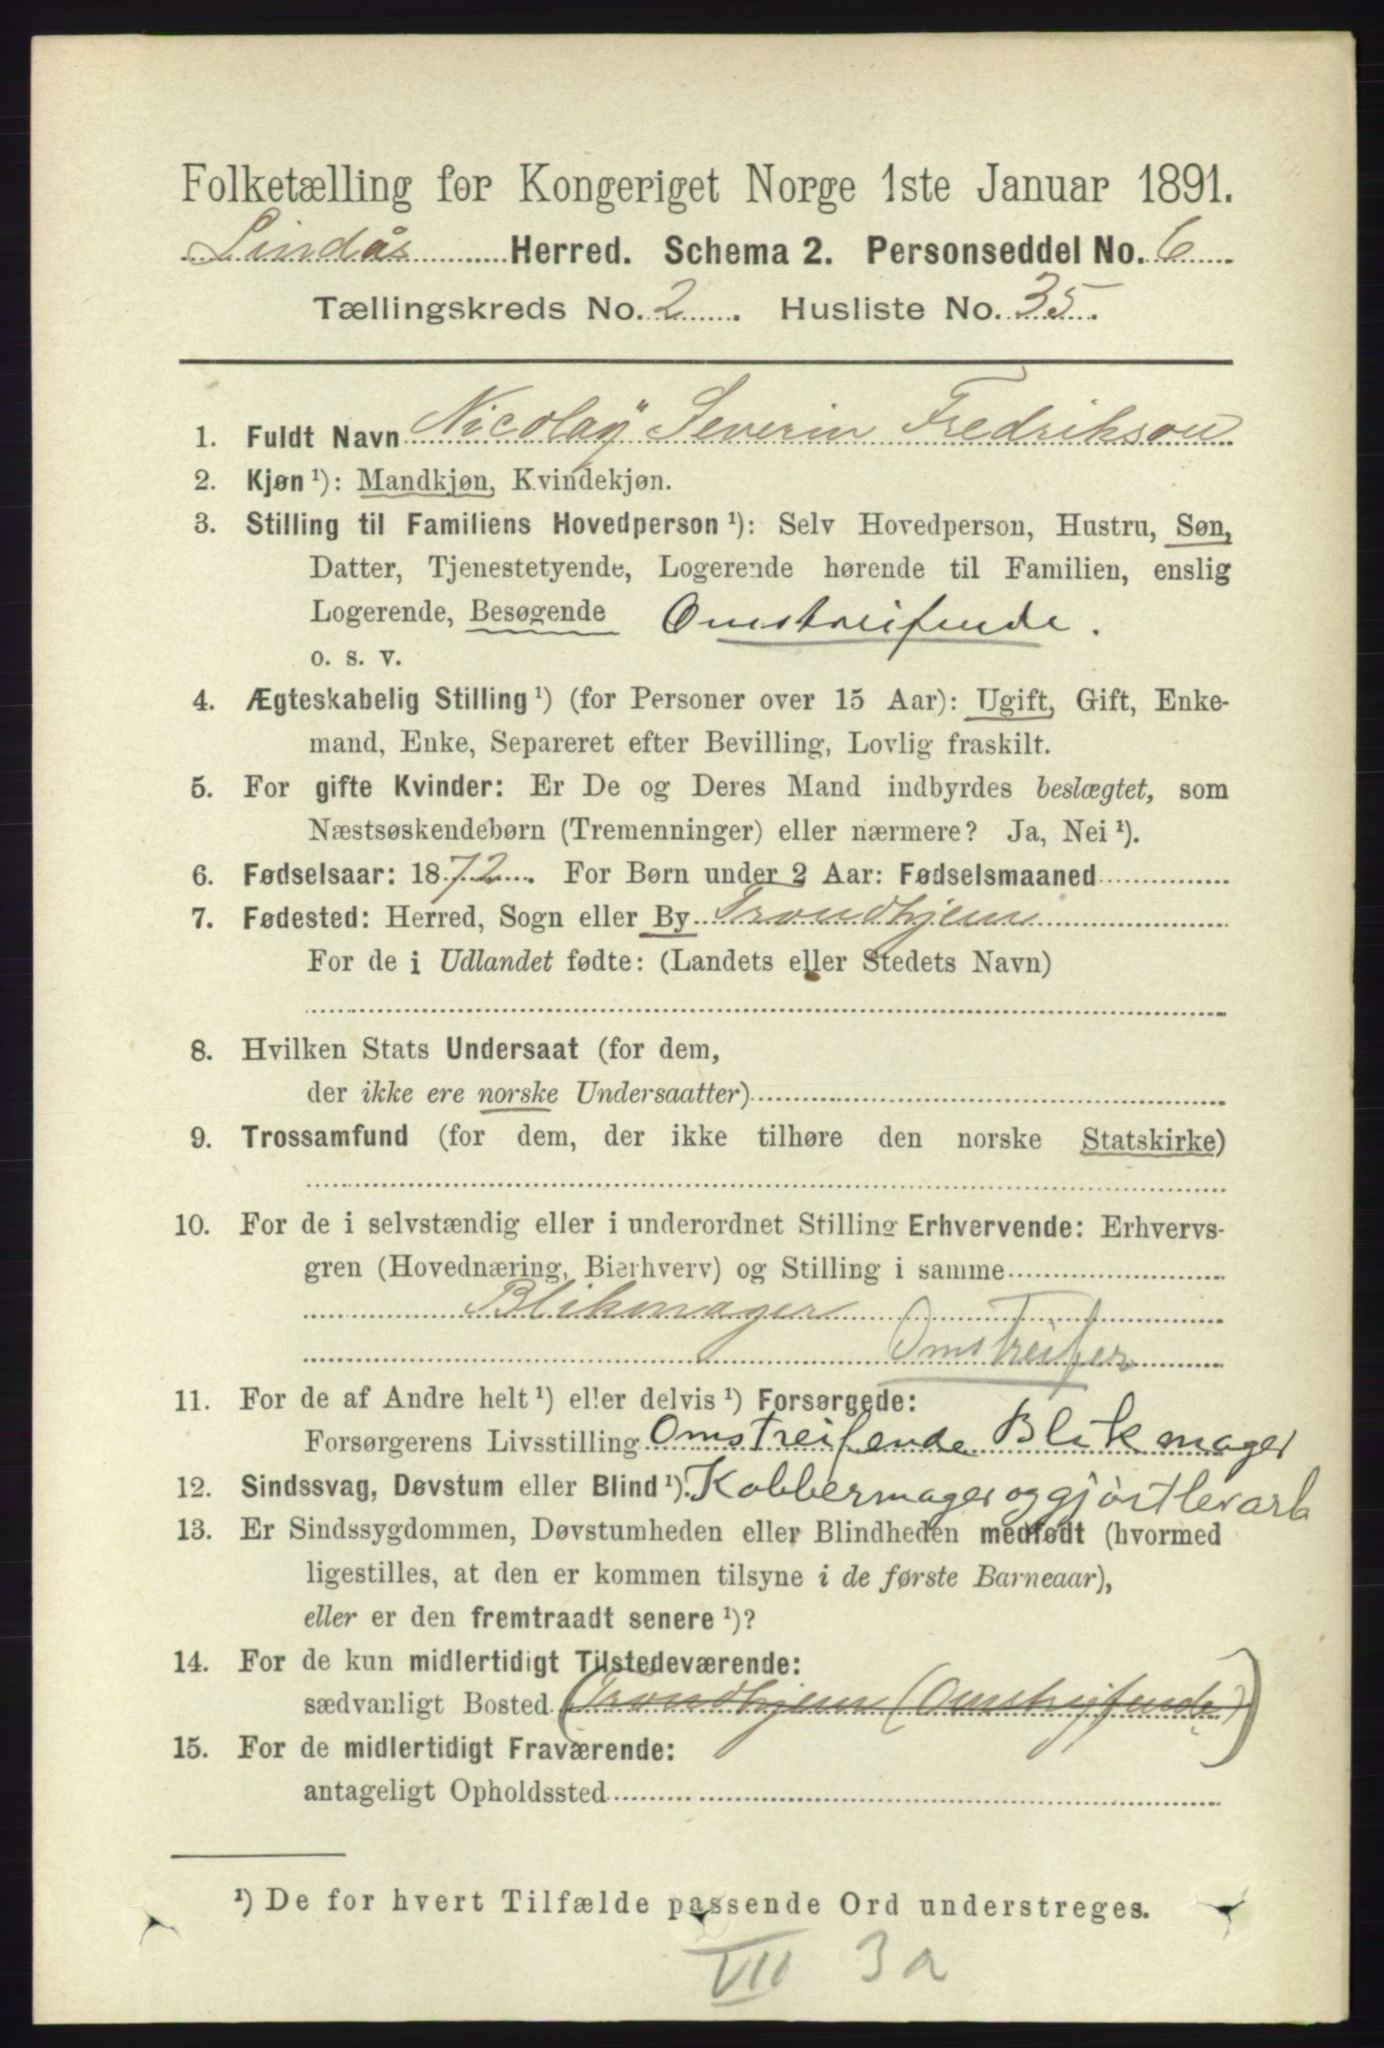 Folketælling for Kongeriget Norge 1ste Januar 1891.
Lindås Herred. Schema 2. Personseddel No. 6
Tællingskreds No. 2. Husliste No. 35.
1. Fuldt Navn Nicolaÿ Severin Fredriksen
2. Kjøn ¹): Mandkjøn, Kvindekjøn.
3. Stilling til Familiens Hovedperson ¹): Selv Hovedperson, Hustru, Søn,
Datter, Tjenestetyende, Logerende hørende til Familien, enslig
Logerende, Besøgende Omstreifende.
o. s. v.
4. Ægteskabelig Stilling ¹) (for Personer over 15 Aar): Ugift, Gift, Enke-
mand, Enke, Separeret efter Bevilling, Lovlig fraskilt.
5. For gifte Kvinder: Er De og Deres Mand indbyrdes beslægtet, som
Næstsøskendebørn (Tremenninger) eller nærmere? Ja, Nei ¹).
6. Fødselsaar: 1872. For Børn under 2 Aar: Fødselsmaaned
7. Fødested: Herred, Sogn eller By Trondhjem
For de i Udlandet fødte: (Landets eller Stedets Navn)
8. Hvilken Stats Undersaat (for dem,
der ikke ere norske Undersaatter)
9. Trossamfund (for dem, der ikke tilhøre den norske Statskirke)
10. For de i selvstændig eller i underordnet Stilling Erhvervende: Erhvervs-
gren (Hovednæring, Bierhverv) og Stilling i samme
Blikmager
Omstreifer
11. For de af Andre helt ¹) eller delvis ¹) Forsørgede:
Forsørgerens Livsstilling Omstreifende Blikmager
12. Sindssvag, Døvstum eller Blind ¹). Kobbermager og gjørtlerarb
13. Er Sindssygdommen, Døvstumheden eller Blindheden medfødt (hvormed
ligestilles, at den er kommen tilsyne i de første Barneaar),
eller er den fremtraadt senere ¹)?
14. For de kun midlertidigt Tilstedeværende:
sædvanligt Bosted (Trondhjem (Omstreifende))
15. For de midlertidigt Fraværende:
antageligt Opholdssted
¹) De for hvert Tilfælde passende Ord understreges.
VII 3a